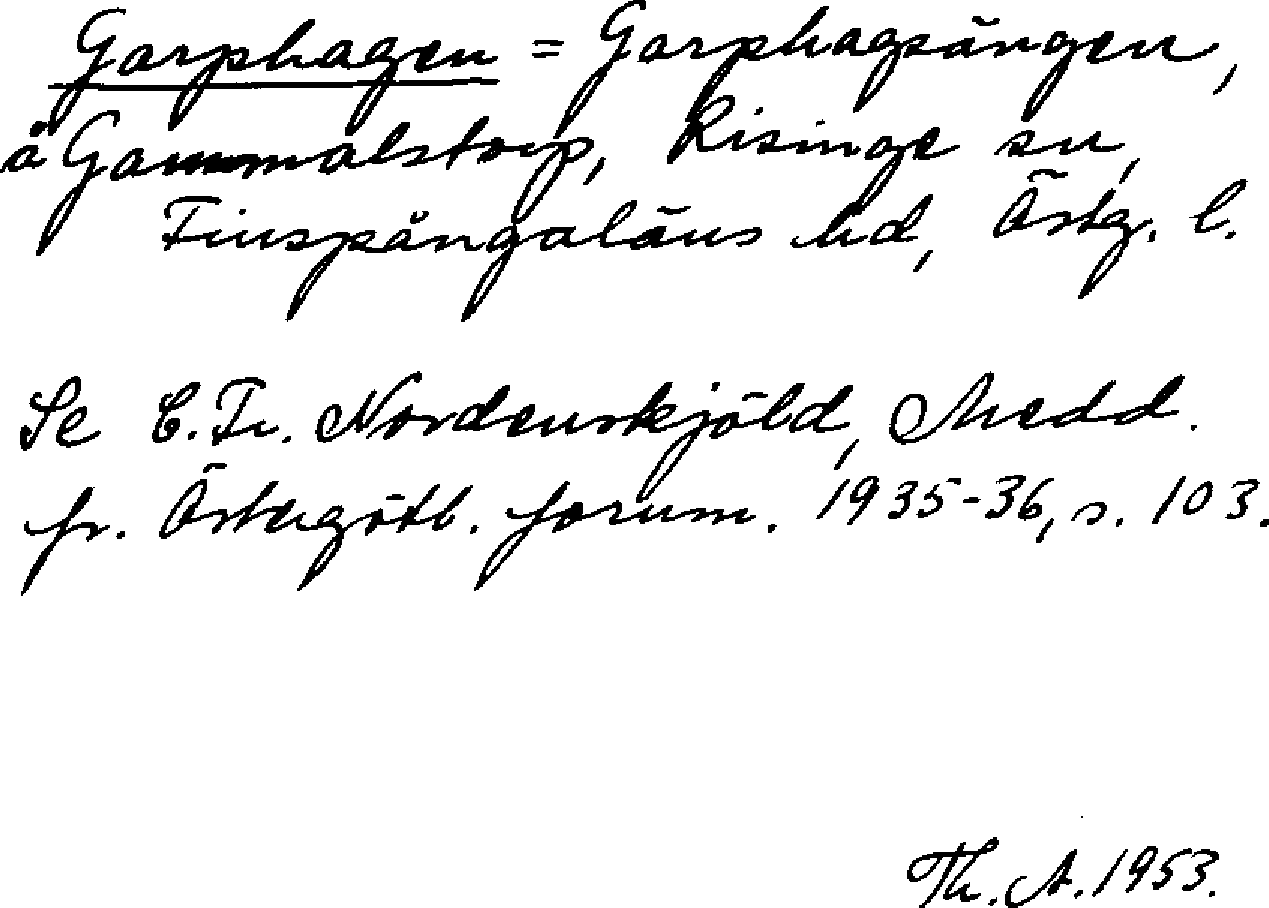 Garphagen = Garphagsängen,
å Gammalstorp, Risinge sn,
Finspångaläns hd, Östg. l.
Se C. Fr. Nordenskjöld, Medd.
fr. Östergötl. fornm. 1935-36, s. 103.
Th. A. 1953.